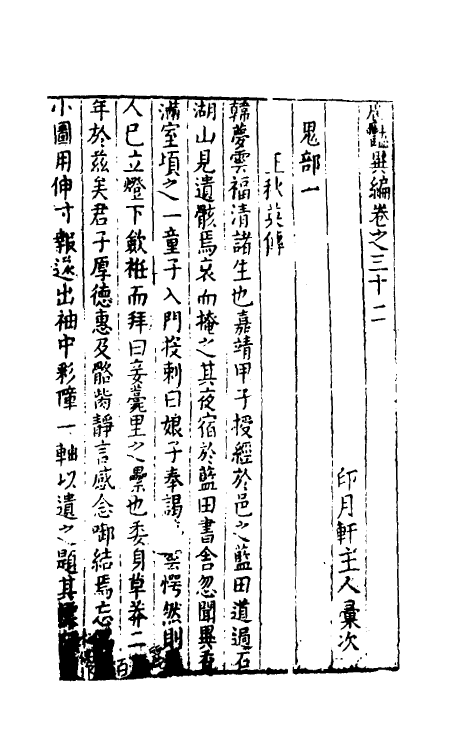 廣艷異編卷之三十二
印月軒主人彙次
鬼部一
王秋英傳
韓夢雲福清諸生也嘉靖甲子授經於邑之藍田道過石
湖山見遺骸焉哀而掩之其夜宿於藍田書舍忽聞異香
滿室頃之一童子入門投刺曰娘子奉謁雲愕然則
人已立燈下斂袵而拜曰妾蘷里之纍也委身草莽二百
年於茲矣君子厚德惠及骼胔靜言感念啣結焉忘
小圖用伸寸報遂出袖中彩障一軸以遺之題其